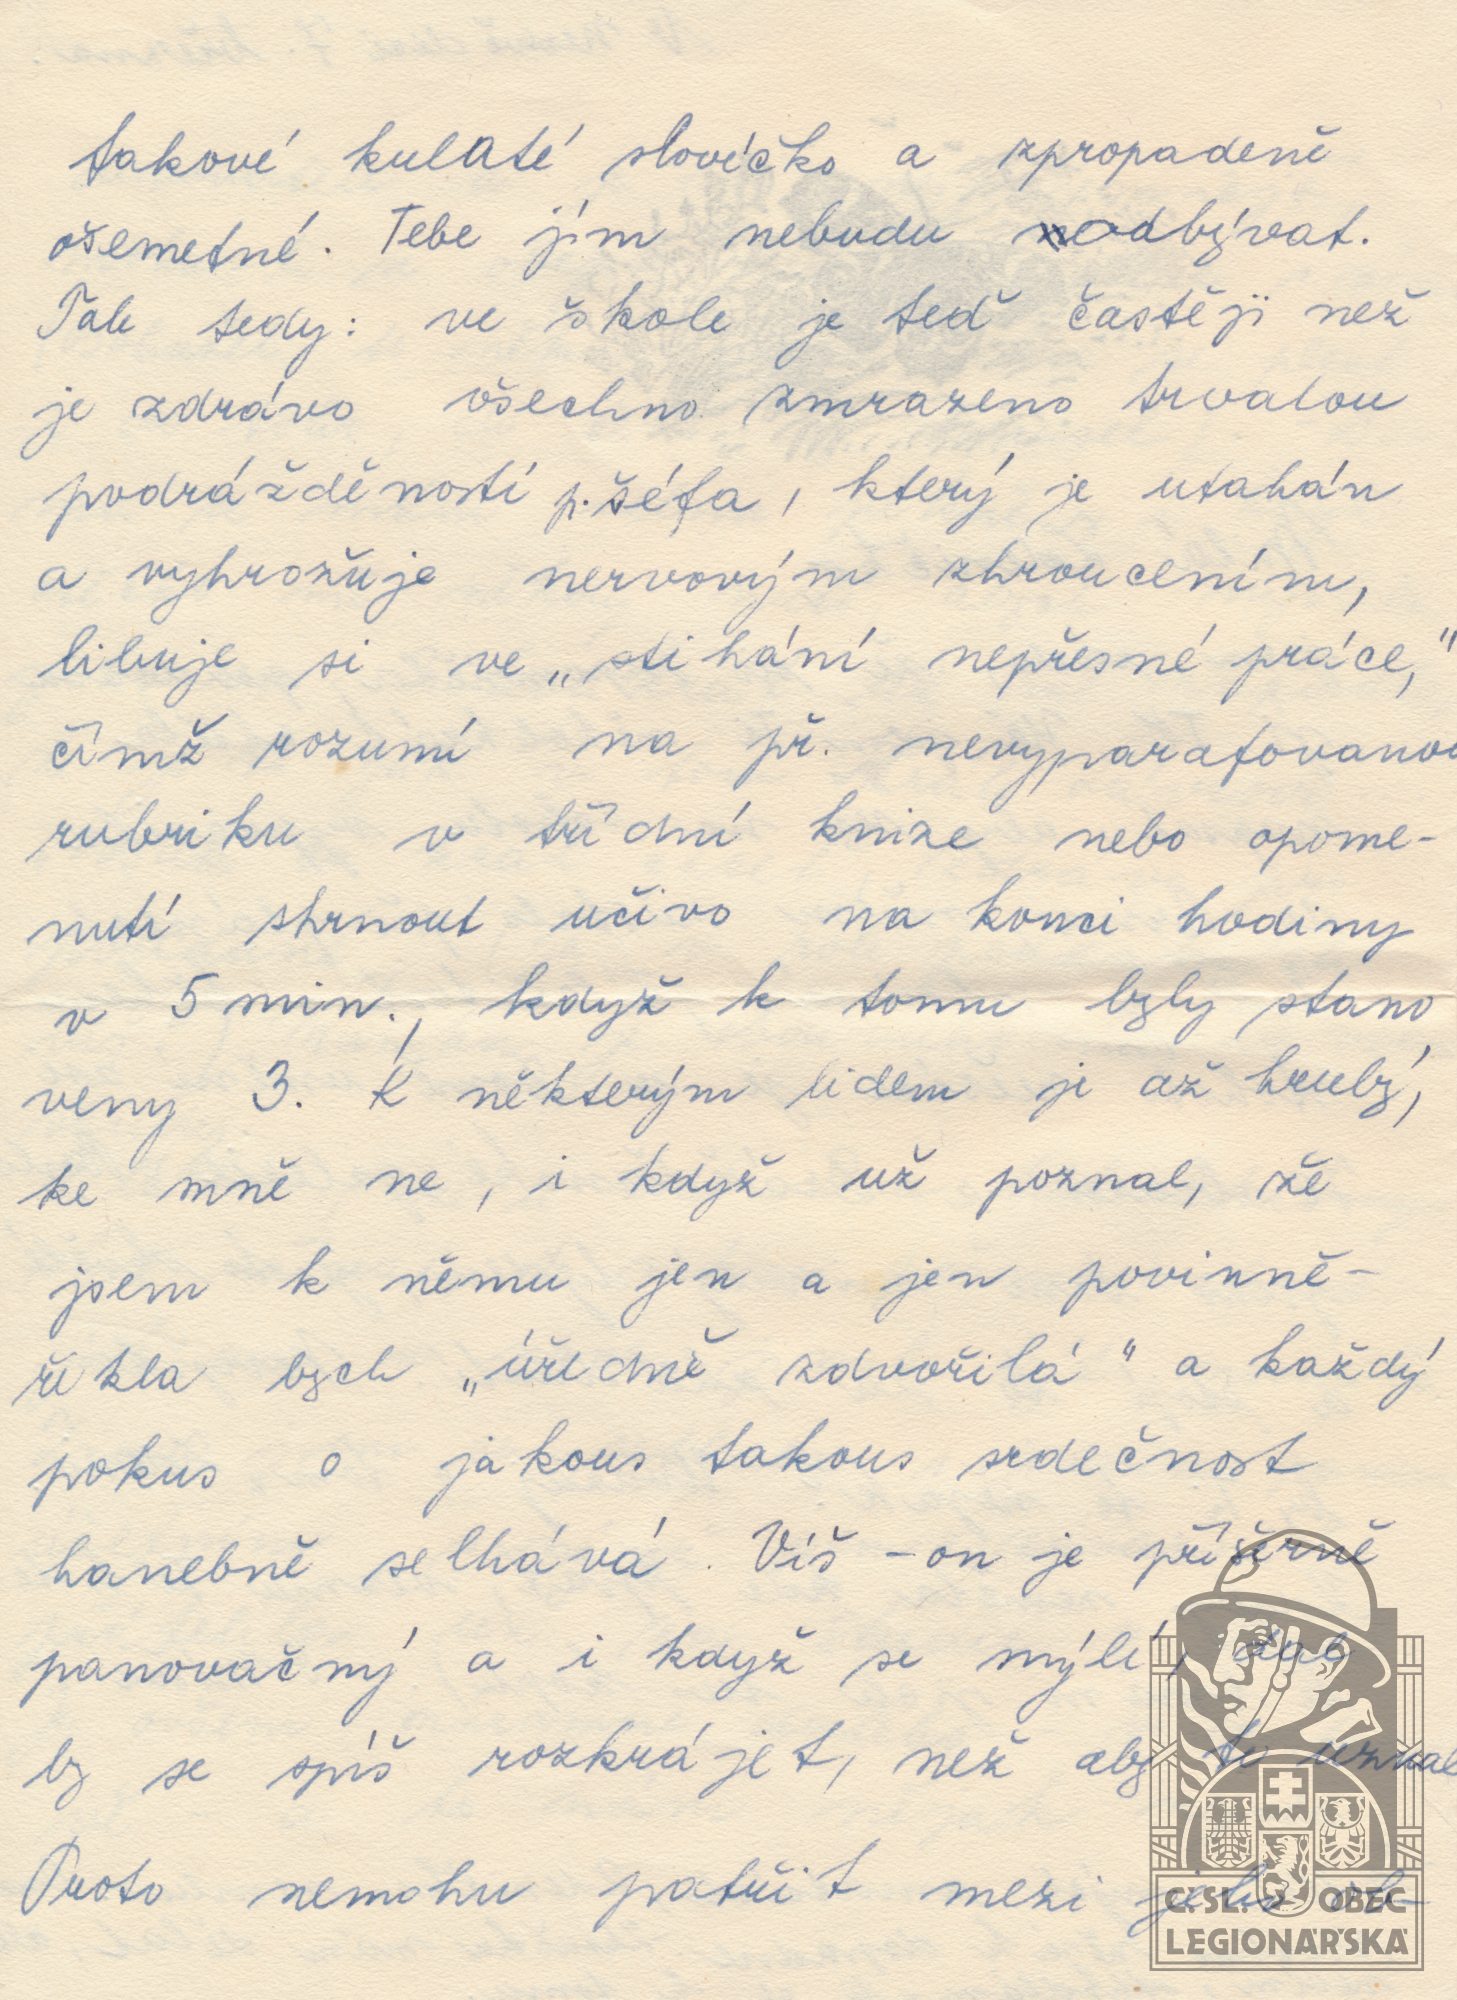 takové kulaté slovíčko a zpropadeně
ošemetné. Tebe jím nebudu odbývat.
Tak tedy: ve škole je teď častěji než
je zdrávo všechno zmrazeno trvalou
podrážděností p. šéfa, který je utahán
a vyhrožuje nervovým zhroucením,
libuje si ve „stihání nepřesné práce,"
čímž rozumí na př. nevyparafovanou
rubriku v třídní knize nebo opome-
nutí shrnout učivo na konci hodiny
v 5 min., když k tomu byly stano
veny 3. K některým lidem je až hrubý,
ke mně ne, i když už poznal, že
jsem k němu jen a jen povinně-
řekla bych „úředně zdvořilá" a každý
pokus o jakous takous srdečnost
hanebně selhává. Víš - on je příšerně
panovačný a i když se mýlí, dal
by se spíš rozkrájet, než aby to uznal
Proto nemohu patřit mezi jeho ob-
Č. SL. OBEC
LEGIONÁŘSKÁ